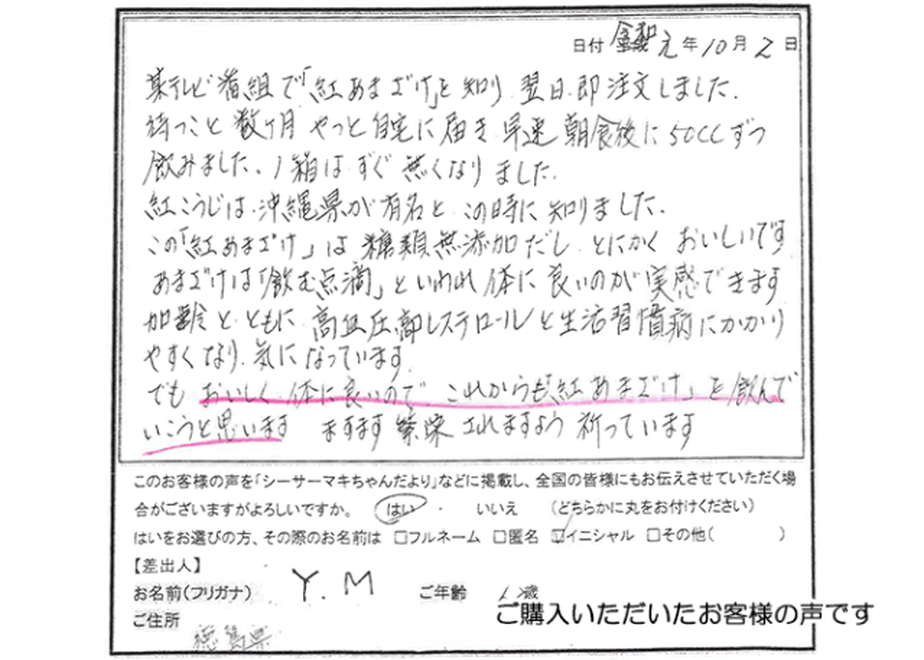 日付 令和元年10月2日
某テレビ番組で「紅あまざけ」を知り 翌日即注文しました.
待つこと 数ヶ月 やっと自宅に届き 早速 朝食後に50CCずつ
飲みました. 1箱は すぐ 無くなりました.
紅こうじは、沖縄県が有名と この時に知りました.
この「紅あまざけ」は 糖類無添加だし とにかく おいしいです
あまざけは「飲む点滴」といわれ 体に良いのが実感できます
加齢と ともに 高血圧、コレステロールと生活習慣病にかかり
やすくなり 気になっています
でも おいしく 体に良いので これからも「紅あまざけ」を飲んで
いこうと思います ますます 繁栄 されますよう 祈っています
このお客様の声を「シーサーマキちゃんだより」などに掲載し、全国の皆様にもお伝えさせていただく場
合がございますがよろしいですか。 はい ・ いいえ (どちらかに丸をお付けください)
はいをお選びの方、その際のお名前は □フルネーム □匿名 ☑イニシャル □その他( )
【差出人】
お名前(フリガナ) Y.M ご年齢 歳
ご住所 徳島県
ご購入いただいたお客様の声です